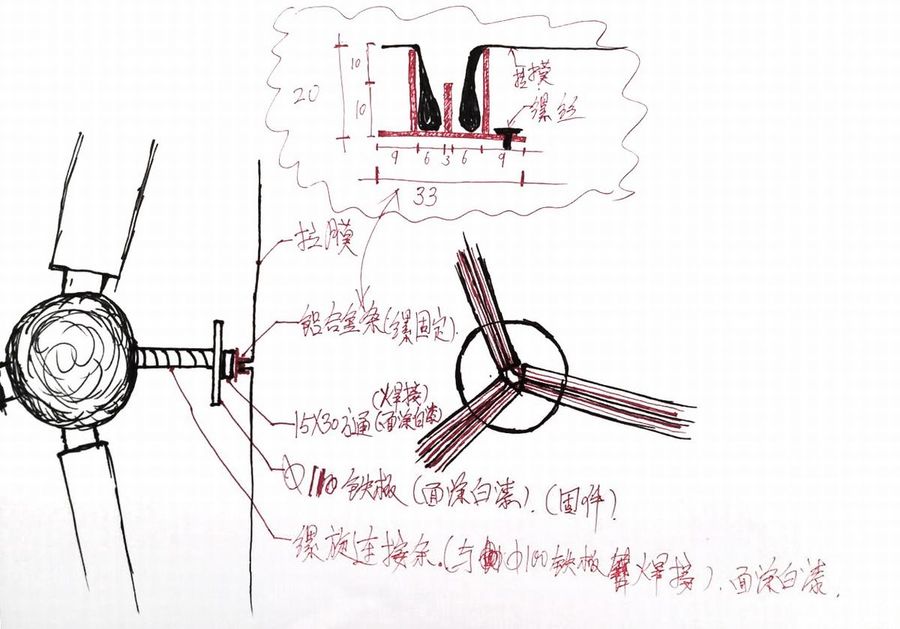 20
10
10
拉膜
螺丝
9 6 3 6 9
33
拉膜
铝合金条(螺固定).
(焊接)
15X30方通(面涂白漆)
铁板(面涂白漆).(固件)
螺旋连接条.(与Φ100铁板焊接).面涂白漆.